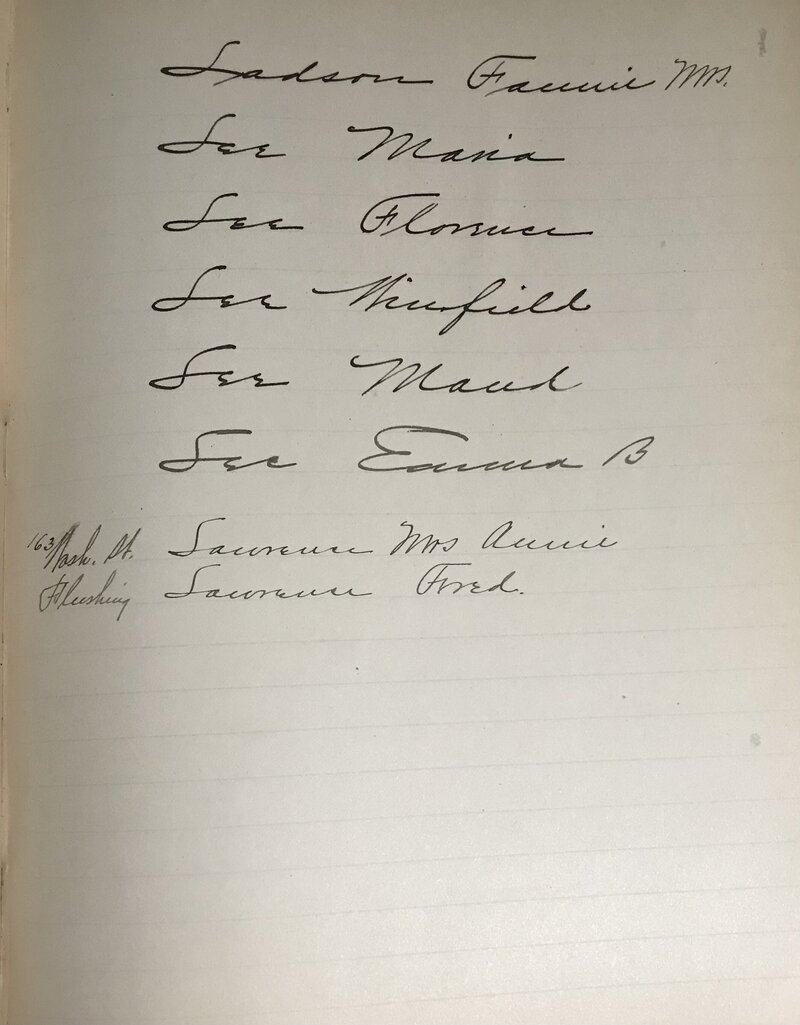 Ladson Fannie Mrs.
Lee Maria
Lee Florence
Lee Winfield
Lee Maud
Lee Emma B
163 Wash. St. Lawrence Mrs Annie
Flushing Lawrence Fred.